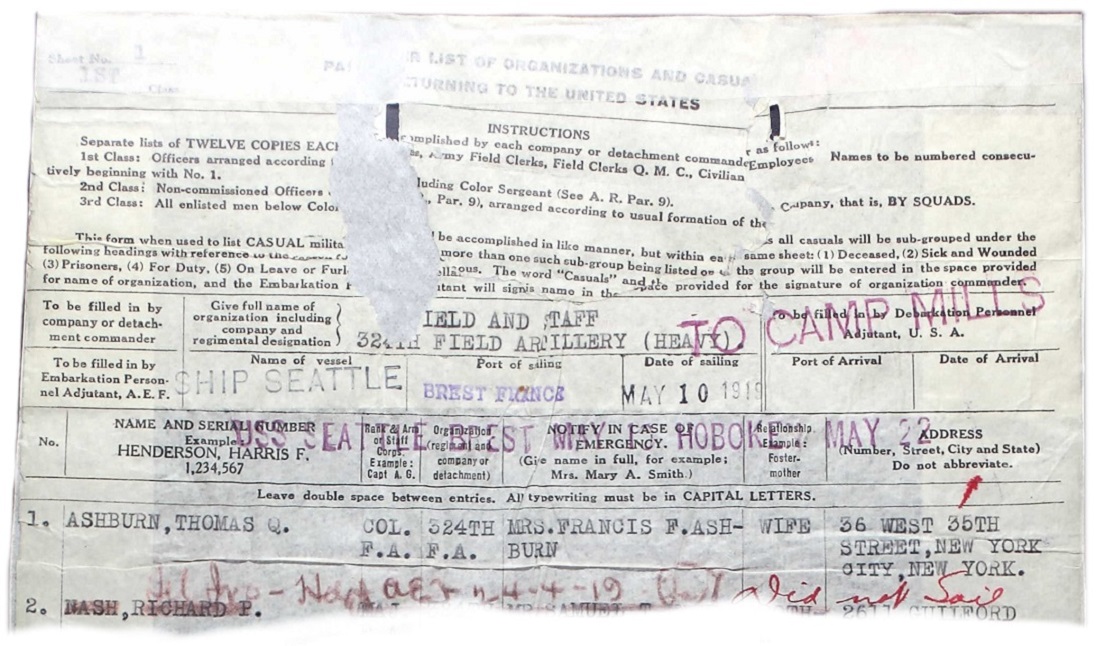 Sheet No. 1
1ST Class
R LIST OF ORGANIZATIONS AND CASUA
TURNING TO THE UNITED STATES
INSTRUCTIONS
Separate lists of TWELVE COPIES EACH mplished by each company or detachment commander as follows:
1st Class: Officers arranged according Army Field Clerks, Field Clerks Q. M. C., Civilian Employees Names to be numbered consecu-
tively beginning with No. 1.
2nd Class: Non-commissioned Officers luding Color Sergeant (See A. R. Par. 9).
3rd Class: All enlisted men below Color Par. 9), arranged according to usual formation of the Company, that is, BY SQUADS.
This form when used to list CASUAL milita be accomplished in like manner, but within ea same sheet: all casuals will be sub-grouped under the
following headings with reference to the more than one such sub-group being listed on (1) Deceased, (2) Sick and Wounded
(3) Prisoners, (4) For Duty, (5) On Leave or Furl The word "Casuals" and the group will be entered in the space provided
for name of organization, and the Embarkation utant will sign his name in the space provided for the signature of organization commander.
To be filled in by company or detach-ment commander
Give full name of organization including company and regimental designation
IELD AND STAFF
324TH FIELD ARTILLERY (HEAVY).
TO CAMP MILLS
To be filled in by Debarkation Personnel Adjutant, U. S. A.
To be filled in by Embarkation Person-nel Adjutant, A. E. F.
Name of vessel
SHIP SEATTLE
Port of sailing
BREST FRANCE
Date of sailing
MAY 10 1919
Port of Arrival
Date of Arrival
USS SEATTLE BREST MAY HOBOKEN MAY 22
No.
NAME AND SERIAL NUMBER
Example:
HENDERSON, HARRIS F.
1,234,567
Rank & Arm or Staff Corps. Example: Capt A. G.
Organization (regiment and company or detachment)
NOTIFY IN CASE OF EMERGENCY.
(Give name in full, for example; Mrs. Mary A. Smith.)
Relationship. Example: Foster-mother
ADDRESS
(Number, Street, City and State)
Do not abbreviate.
Leave double space between entries. All typewriting must be in CAPITAL LETTERS.
1. ASHBURN, THOMAS Q. COL. 324TH MRS. FRANCIS F. ASH- WIFE 36 WEST 35TH
F.A. F.A. BURN STREET, NEW YORK
CITY, NEW YORK.
4-4-19 Did not Sail
2. NASH, RICHARD P. SAMUEL 2611 GUILFORD